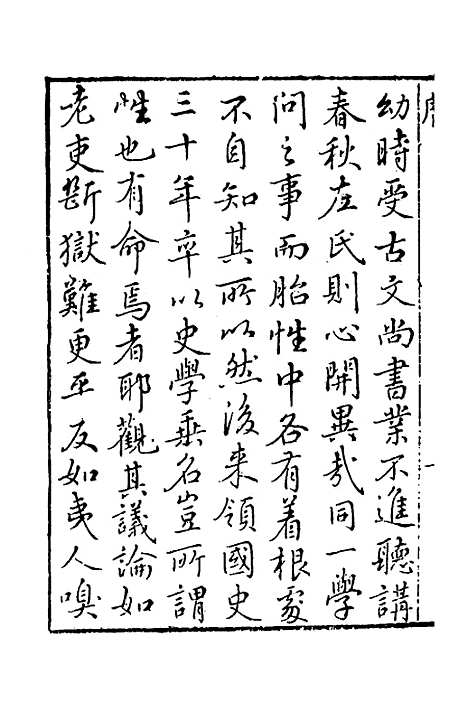 序
幼時受古文尚書業不進聽講
春秋左氏則心開異哉同一學
問之事而胎性中各有着根處
不自知其所以然後来領國史
三十年卒以史學垂名豈所謂
性也有命焉者耶觀其議論如
老吏斷獄難更平反如夷人嗅